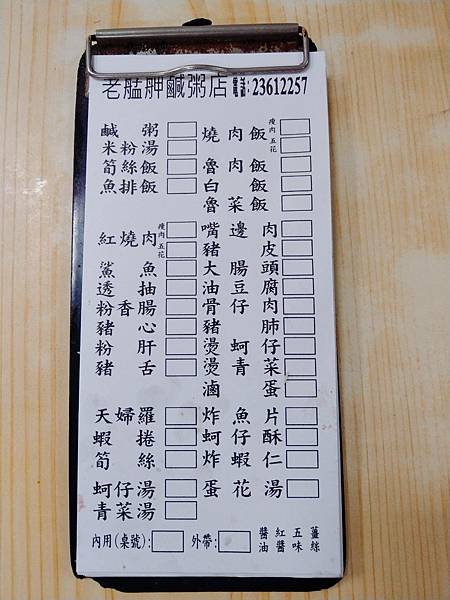 老艋舺鹹粥店 電話:23612257
鹹粥 燒肉飯 瘦肉 五花
米粉湯
筍絲飯 魯肉飯
魚排飯 白飯
魯菜飯
紅燒肉 瘦肉 五花 嘴邊肉
豬皮
鯊魚 大腸頭
透抽 油豆腐
粉香腸 骨仔肉
豬心 豬肺
粉肝 燙蚵仔
豬舌 燙青菜
滷蛋
天婦羅 炸魚片
蝦捲 蚵仔酥
筍絲 炸蝦仁
蚵仔湯 蛋花湯
青菜湯
內用(桌號): 外帶: 醬油 紅醬 五味 薑絲